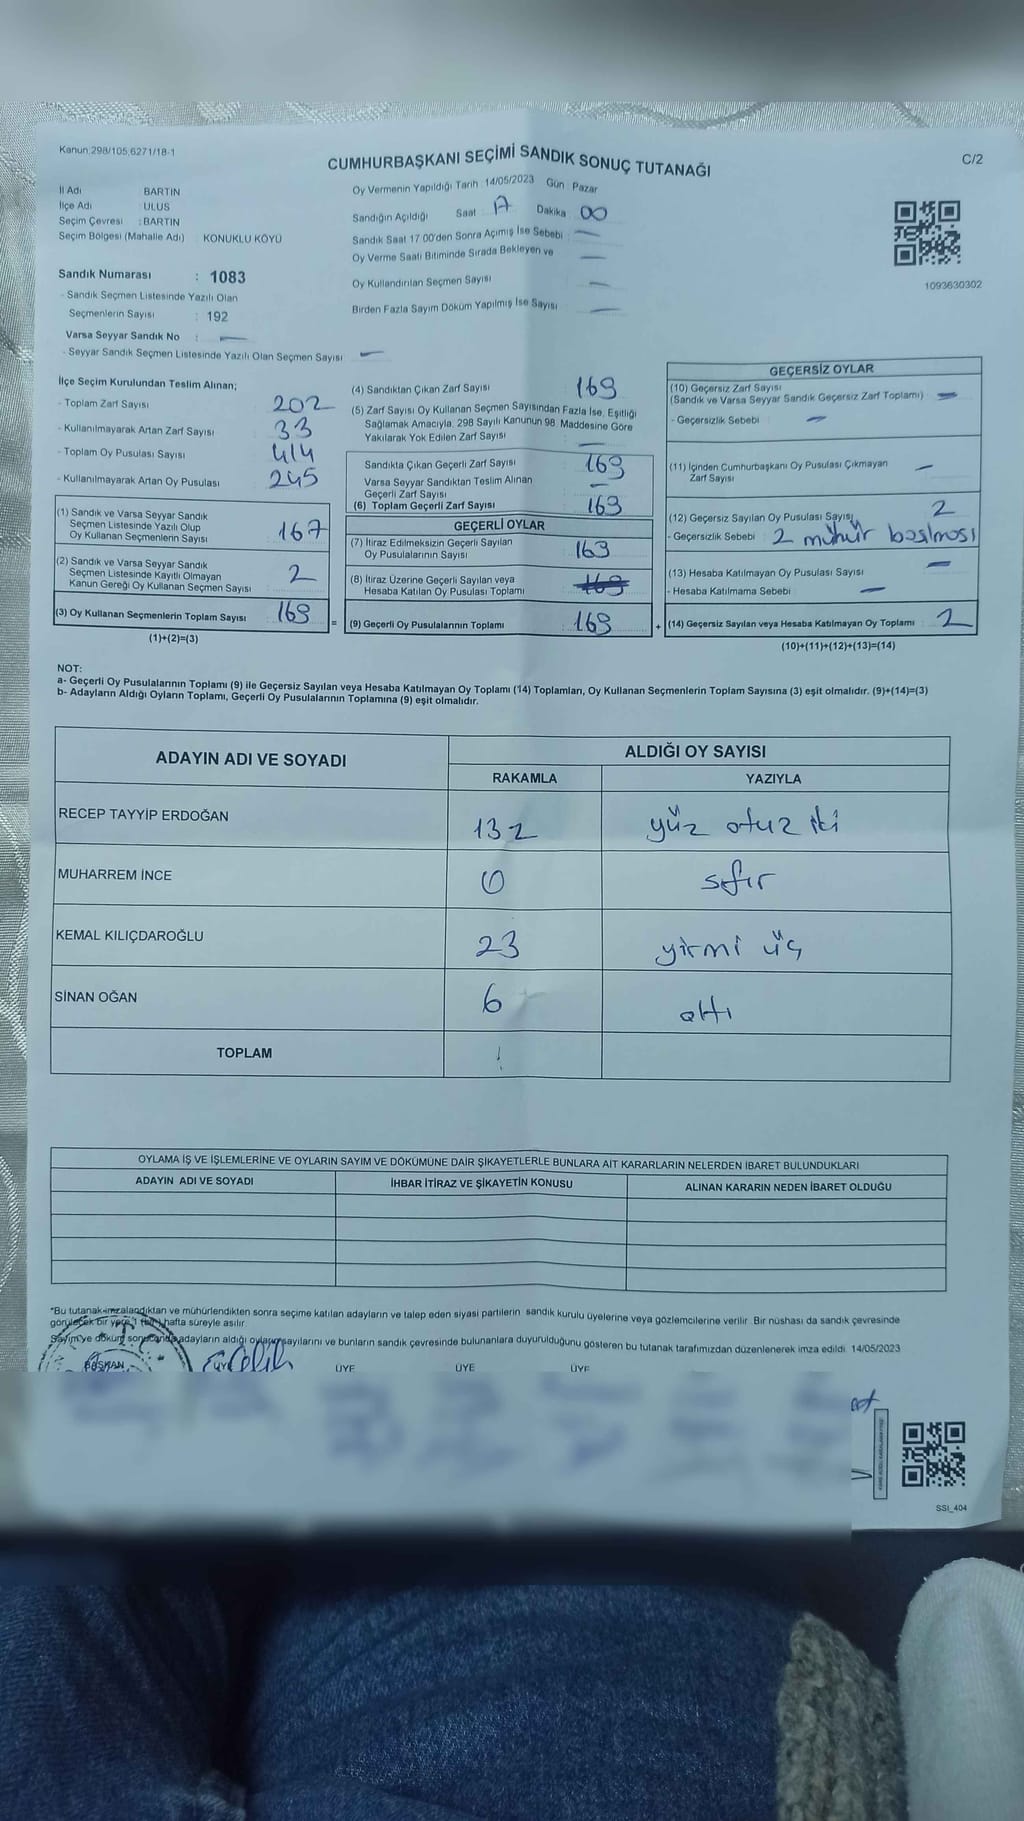 Kanun:298/105,6271/18-1
CUMHURBAŞKANI SEÇİMİ SANDIK SONUÇ TUTANAĞI
C/2
İl Adı BARTIN
İlçe Adı ULUS
Seçim Çevresi : BARTIN
Seçim Bölgesi (Mahalle Adı) : KONUKLU KÖYÜ
Oy Vermenin Yapıldığı Tarih : 14/05/2023 Gün : Pazar
Sandığın Açıldığı Saat : 17 Dakika : 00
Sandık Saat 17:00'den Sonra Açımış İse Sebebi : —
Oy Verme Saati Bitiminde Sırada Bekleyen ve
Oy Kullandırılan Seçmen Sayısı —
Birden Fazla Sayım Döküm Yapılmış İse Sayısı —
1093630302
Sandık Numarası : 1083
- Sandık Seçmen Listesinde Yazılı Olan
Seçmenlerin Sayısı : 192
Varsa Seyyar Sandık No : —
- Seyyar Sandık Seçmen Listesinde Yazılı Olan Seçmen Sayısı —
İlçe Seçim Kurulundan Teslim Alınan;
- Toplam Zarf Sayısı 202
- Kullanılmayarak Artan Zarf Sayısı 33
- Toplam Oy Pusulası Sayısı 414
- Kullanılmayarak Artan Oy Pusulası 245
(1) Sandık ve Varsa Seyyar Sandık
Seçmen Listesinde Yazılı Olup
Oy Kullanan Seçmenlerin Sayısı 167
(2) Sandık ve Varsa Seyyar Sandık
Seçmen Listesinde Kayıtlı Olmayan
Kanun Gereği Oy Kullanan Seçmen Sayısı 2
(3) Oy Kullanan Seçmenlerin Toplam Sayısı 169
(1)+(2)=(3)
(4) Sandıktan Çıkan Zarf Sayısı 169
(5) Zarf Sayısı Oy Kullanan Seçmen Sayısından Fazla İse, Eşitliği
Sağlamak Amacıyla, 298 Sayılı Kanunun 98. Maddesine Göre
Yakılarak Yok Edilen Zarf Sayısı —
Sandıkta Çıkan Geçerli Zarf Sayısı 169
Varsa Seyyar Sandıktan Teslim Alınan
Geçerli Zarf Sayısı —
(6) Toplam Geçerli Zarf Sayısı 169
GEÇERLİ OYLAR
(7) İtiraz Edilmeksizin Geçerli Sayılan
Oy Pusulalarının Sayısı 169
(8) İtiraz Üzerine Geçerli Sayılan veya
Hesaba Katılan Oy Pusulası Toplamı 169
= (9) Geçerli Oy Pusulalarının Toplamı 169
GEÇERSİZ OYLAR
(10) Geçersiz Zarf Sayısı
(Sandık ve Varsa Seyyar Sandık Geçersiz Zarf Toplamı) —
- Geçersizlik Sebebi : —
(11) İçinden Cumhurbaşkanı Oy Pusulası Çıkmayan
Zarf Sayısı —
(12) Geçersiz Sayılan Oy Pusulası Sayısı 2
- Geçersizlik Sebebi : 2 mühür basılması
(13) Hesaba Katılmayan Oy Pusulası Sayısı —
- Hesaba Katılmama Sebebi : —
+ (14) Geçersiz Sayılan veya Hesaba Katılmayan Oy Toplamı : 2
(10)+(11)+(12)+(13)=(14)
NOT:
a- Geçerli Oy Pusulalarının Toplamı (9) ile Geçersiz Sayılan veya Hesaba Katılmayan Oy Toplamı (14) Toplamları, Oy Kullanan Seçmenlerin Toplam Sayısına (3) eşit olmalıdır. (9)+(14)=(3)
b- Adayların Aldığı Oyların Toplamı, Geçerli Oy Pusulalarının Toplamına (9) eşit olmalıdır.
ADAYIN ADI VE SOYADI ALDIĞI OY SAYISI
RAKAMLA YAZIYLA
RECEP TAYYİP ERDOĞAN 132 yüz otuz iki
MUHARREM İNCE 0 sıfır
KEMAL KILIÇDAROĞLU 23 yirmi üç
SİNAN OĞAN 6 altı
TOPLAM
OYLAMA İŞ VE İŞLEMLERİNE VE OYLARIN SAYIM VE DÖKÜMÜNE DAİR ŞİKAYETLERLE BUNLARA AİT KARARLARIN NELERDEN İBARET BULUNDUKLARI
ADAYIN ADI VE SOYADI İHBAR İTİRAZ VE ŞİKAYETİN KONUSU ALINAN KARARIN NEDEN İBARET OLDUĞU
*Bu tutanak imzalandıktan ve mühürlendikten sonra seçime katılan adayların ve talep eden siyasi partilerin sandık kurulu üyelerine veya gözlemcilerine verilir. Bir nüshası da sandık çevresinde
görülecek bir yere 1 (bir) hafta süreyle asılır.
Sayım ve döküm sonucunda adayların aldığı oyların sayılarını ve bunların sandık çevresinde bulunanlara duyurulduğunu gösteren bu tutanak tarafımızdan düzenlenerek imza edildi. 14/05/2023
BAŞKAN ÜYE ÜYE ÜYE ÜYE
SSI_404